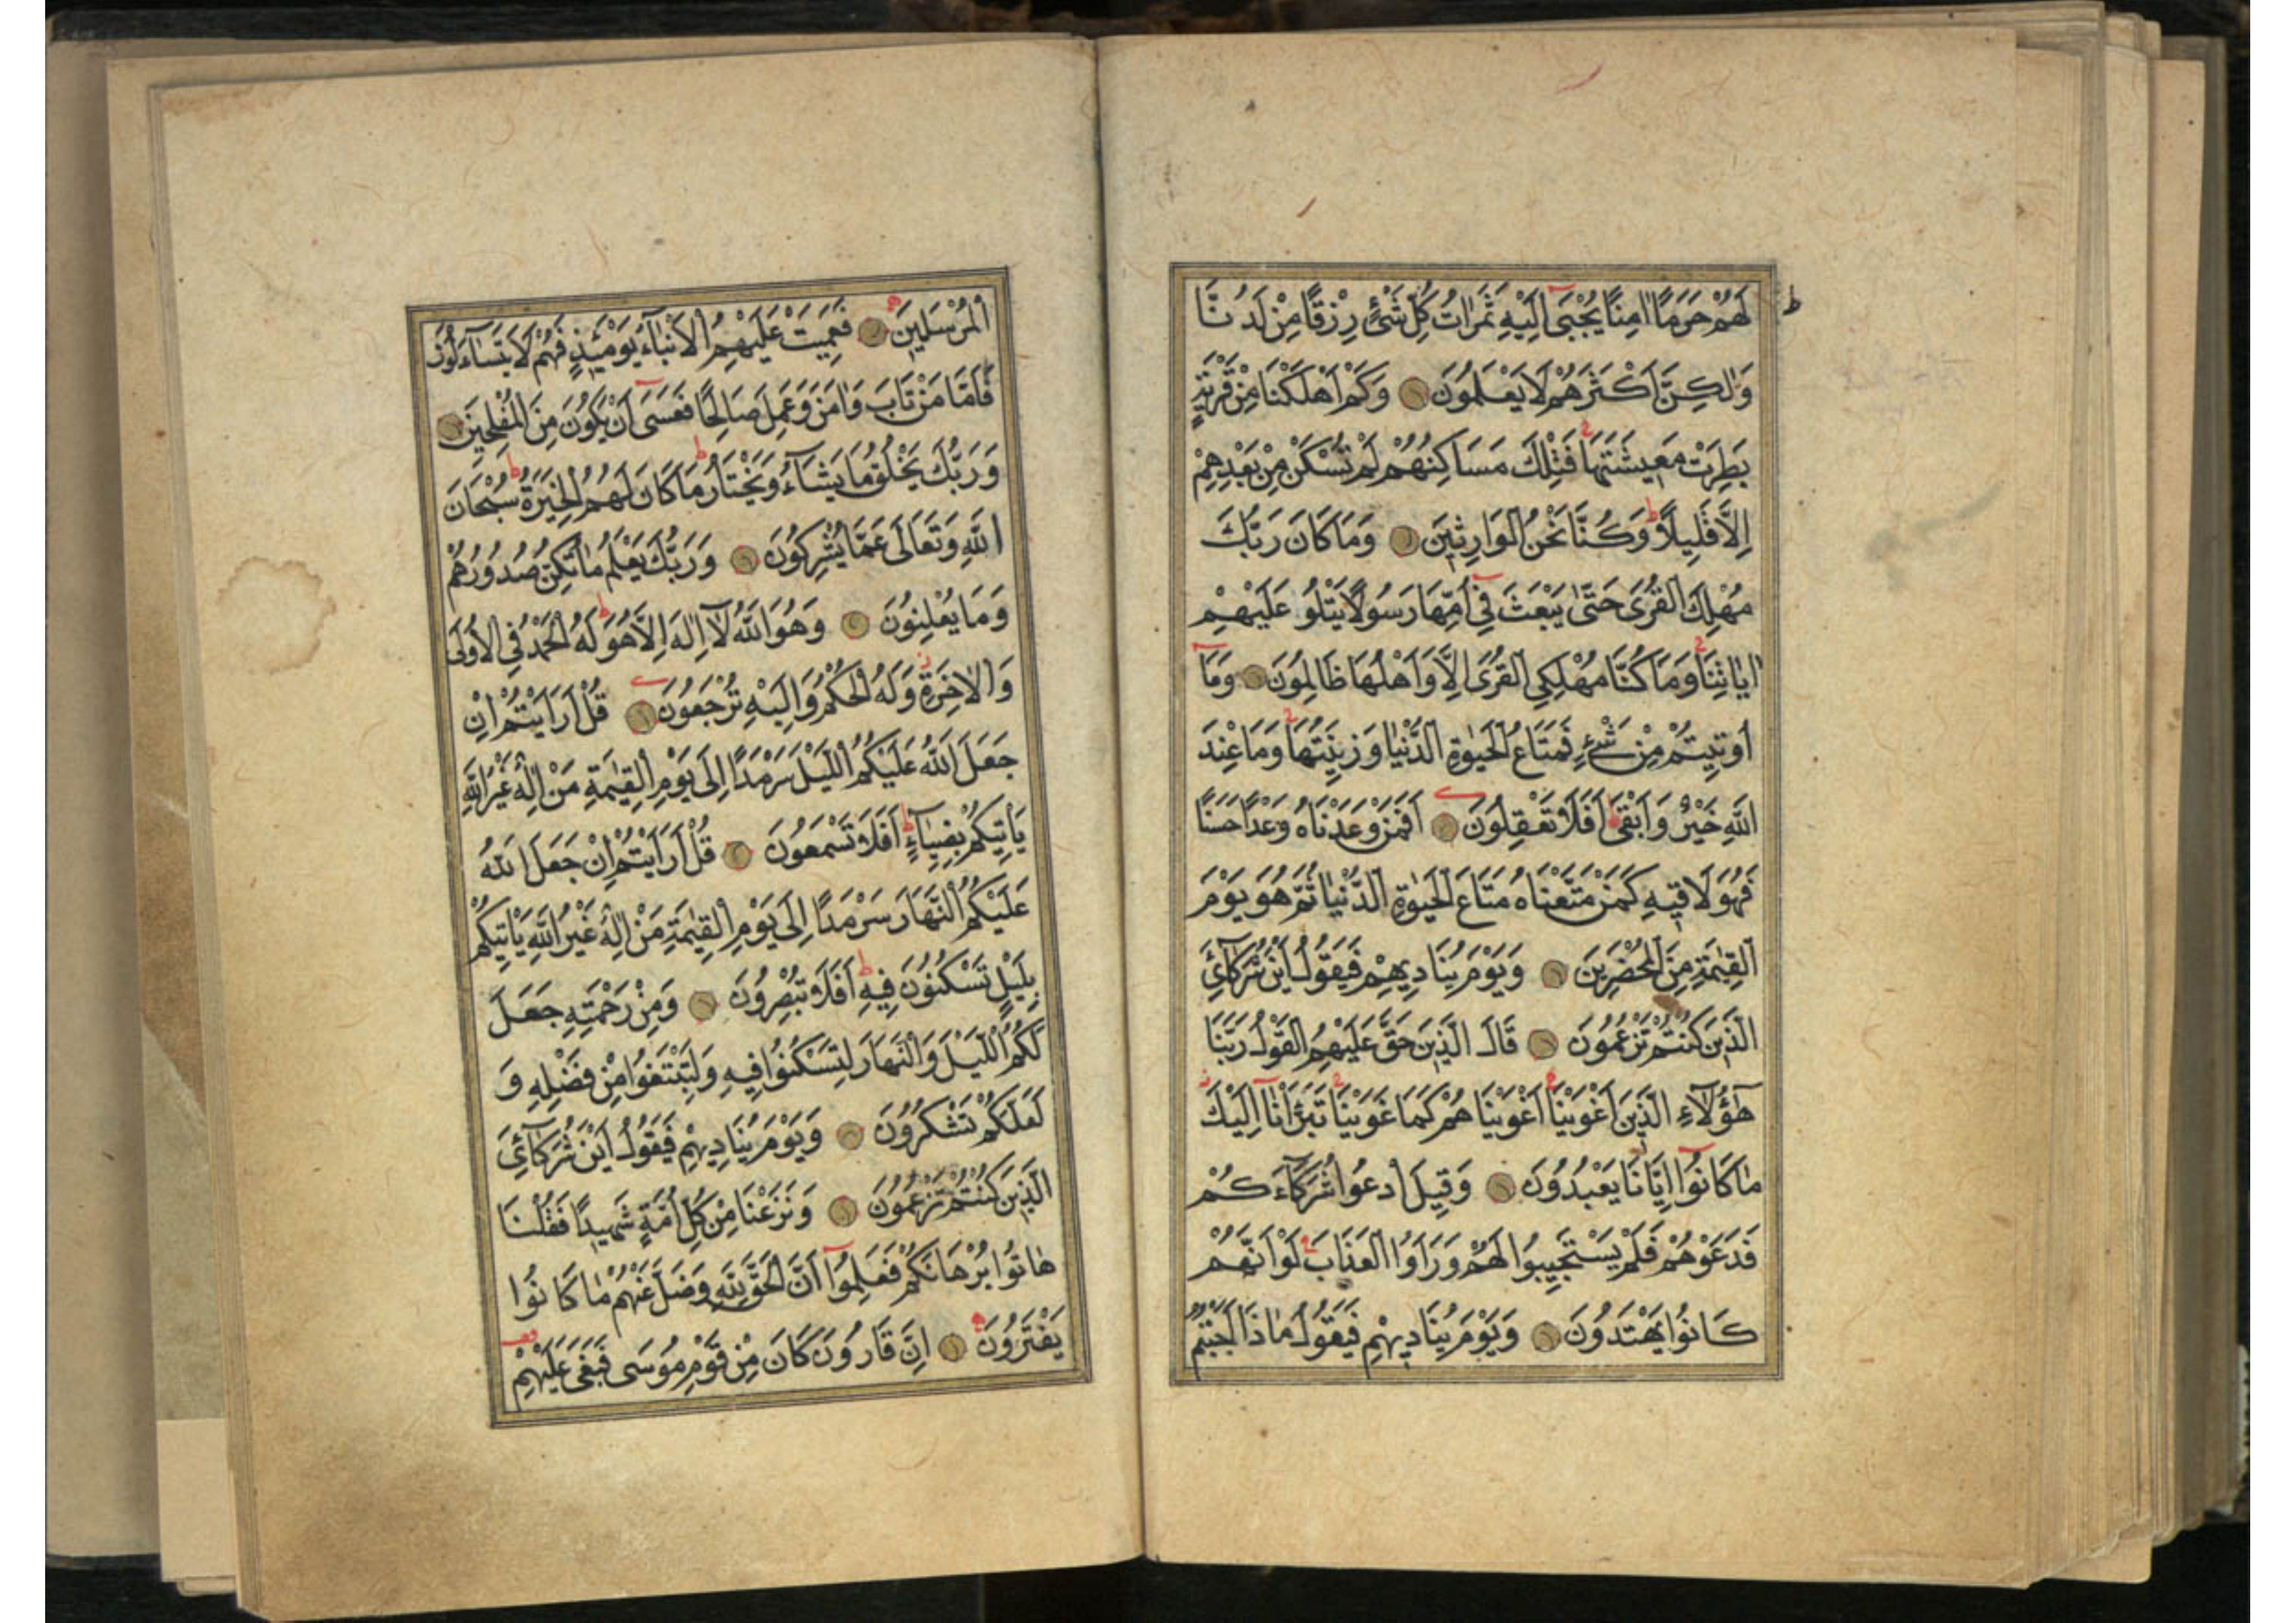 لَهُمْ حَرَمًا اٰمِنًا يُجْبَىٰ اِلَيْهِ ثَمَرَاتُ كُلِّ شَىْءٍ رِزْقًا مِنْ لَدُنَّا
وَلٰكِنَّ اَكْثَرَهُمْ لَا يَعْلَمُونَ وَكَمْ اَهْلَكْنَا مِنْ قَرْيَةٍ
بَطِرَتْ مَعِيشَتَهَا فَتِلْكَ مَسَاكِنُهُمْ لَمْ تُسْكَنْ مِنْ بَعْدِهِمْ
اِلَّا قَلِيلًا وَكُنَّا نَحْنُ الْوَارِثِينَ وَمَا كَانَ رَبُّكَ
مُهْلِكَ الْقُرَى حَتّٰى يَبْعَثَ فِى اُمِّهَا رَسُولًا يَتْلُو عَلَيْهِمْ
اٰيَاتِنَا وَمَا كُنَّا مُهْلِكِى الْقُرَى اِلَّا وَاَهْلُهَا ظَالِمُونَ وَمَا
اُوتِيتُمْ مِنْ شَىْءٍ فَمَتَاعُ الْحَيٰوةِ الدُّنْيَا وَزِينَتُهَا وَمَا عِنْدَ
اللّٰهِ خَيْرٌ وَاَبْقَى اَفَلَا تَعْقِلُونَ اَفَمَنْ وَعَدْنَاهُ وَعْدًا حَسَنًا
فَهُوَ لَاقِيهِ كَمَنْ مَتَّعْنَاهُ مَتَاعَ الْحَيٰوةِ الدُّنْيَا ثُمَّ هُوَ يَوْمَ
الْقِيٰمَةِ مِنَ الْمُحْضَرِينَ وَيَوْمَ يُنَادِيهِمْ فَيَقُولُ اَيْنَ شُرَكَائِىَ
الَّذِينَ كُنْتُمْ تَزْعُمُونَ قَالَ الَّذِينَ حَقَّ عَلَيْهِمُ الْقَوْلُ رَبَّنَا
هٰٓؤُلَاءِ الَّذِينَ اَغْوَيْنَا اَغْوَيْنَاهُمْ كَمَا غَوَيْنَا تَبَرَّأْنَا اِلَيْكَ
مَا كَانُوا اِيَّانَا يَعْبُدُونَ وَقِيلَ ادْعُوا شُرَكَاءَكُمْ
فَدَعَوْهُمْ فَلَمْ يَسْتَجِيبُوا لَهُمْ وَرَاَوُا الْعَذَابَ لَوْ اَنَّهُمْ
كَانُوا يَهْتَدُونَ وَيَوْمَ يُنَادِيهِمْ فَيَقُولُ مَاذَا اَجَبْتُمُ
الْمُرْسَلِينَ فَعَمِيَتْ عَلَيْهِمُ الْاَنْبَاءُ يَوْمَئِذٍ فَهُمْ لَا يَتَسَاءَلُونَ
فَاَمَّا مَنْ تَابَ وَاٰمَنَ وَعَمِلَ صَالِحًا فَعَسَى اَنْ يَكُونَ مِنَ الْمُفْلِحِينَ
وَرَبُّكَ يَخْلُقُ مَا يَشَاءُ وَيَخْتَارُ مَا كَانَ لَهُمُ الْخِيَرَةُ سُبْحَانَ
اللّٰهِ وَتَعَالَى عَمَّا يُشْرِكُونَ وَرَبُّكَ يَعْلَمُ مَا تُكِنُّ صُدُورُهُمْ
وَمَا يُعْلِنُونَ وَهُوَ اللّٰهُ لَا اِلٰهَ اِلَّا هُوَ لَهُ الْحَمْدُ فِى الْاُولَى
وَالْاٰخِرَةِ وَلَهُ الْحُكْمُ وَاِلَيْهِ تُرْجَعُونَ قُلْ اَرَاَيْتُمْ اِنْ
جَعَلَ اللّٰهُ عَلَيْكُمُ اللَّيْلَ سَرْمَدًا اِلَى يَوْمِ الْقِيٰمَةِ مَنْ اِلٰهٌ غَيْرُ اللّٰهِ
يَأْتِيكُمْ بِضِيَاءٍ اَفَلَا تَسْمَعُونَ قُلْ اَرَاَيْتُمْ اِنْ جَعَلَ اللّٰهُ
عَلَيْكُمُ النَّهَارَ سَرْمَدًا اِلَى يَوْمِ الْقِيٰمَةِ مَنْ اِلٰهٌ غَيْرُ اللّٰهِ يَأْتِيكُمْ
بِلَيْلٍ تَسْكُنُونَ فِيهِ اَفَلَا تُبْصِرُونَ وَمِنْ رَحْمَتِهِ جَعَلَ
لَكُمُ اللَّيْلَ وَالنَّهَارَ لِتَسْكُنُوا فِيهِ وَلِتَبْتَغُوا مِنْ فَضْلِهِ وَ
لَعَلَّكُمْ تَشْكُرُونَ وَيَوْمَ يُنَادِيهِمْ فَيَقُولُ اَيْنَ شُرَكَائِىَ
الَّذِينَ كُنْتُمْ تَزْعُمُونَ وَنَزَعْنَا مِنْ كُلِّ اُمَّةٍ شَهِيدًا فَقُلْنَا
هَاتُوا بُرْهَانَكُمْ فَعَلِمُوا اَنَّ الْحَقَّ لِلّٰهِ وَضَلَّ عَنْهُمْ مَا كَانُوا
يَفْتَرُونَ اِنَّ قَارُونَ كَانَ مِنْ قَوْمِ مُوسَى فَبَغَى عَلَيْهِمْ